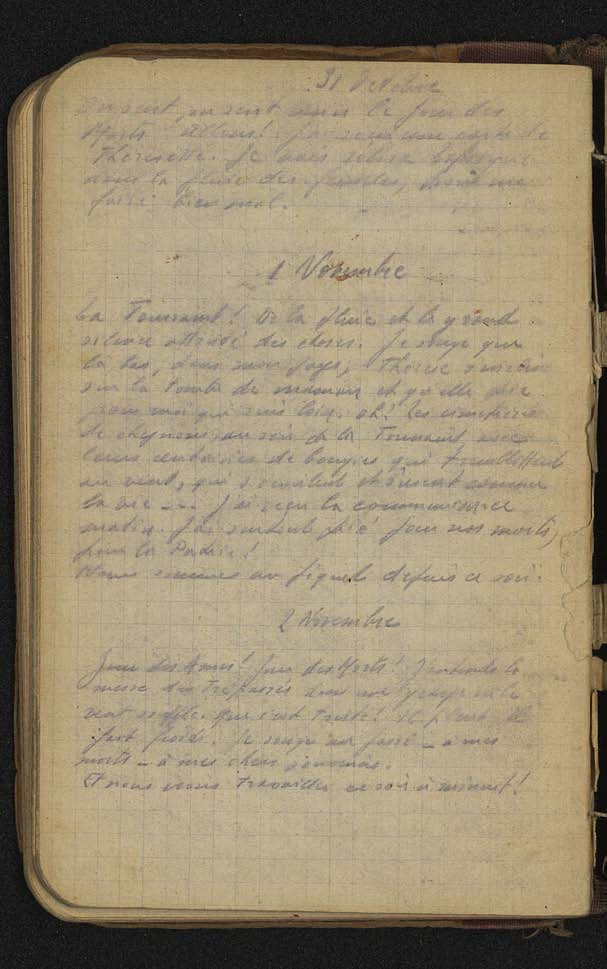 31 Octobre
On sent, on sent venir le Jour des
Morts. Allons! J'ai reçu une carte de
Thérésette. Je vais
dans la pluie des
faire bien mal.
1 Novembre
La Toussaint! De la pluie et le grand
silence attristé des choses. Je songe que
là bas, dans mon pays, Thérèse s'en ira
sur la tombe de maman et qu'elle prie
pour moi qui suis loin, oh! Les cimetières
de chez nous au soir de la Toussaint, avec
leurs centaines de bougies qui tremblottent
au vent, qui s'éteignent et s'usent comme
la vie --- J'ai reçu la communion ce
matin. J'ai surtout prié pour nos morts,
pour la Patrie!
Nous sommes au piquet depuis ce soir.
2 Novembre
Jour des Ames! Jour des Morts! J'entends la
messe des Trépassés dans une grange où le
vent souffle. Que c'est triste! Il pleut. Il
fait froid. Je songe au passé - à mes
morts - à mes chers souvenirs.
Et nous irons travailler ce soir à minuit!